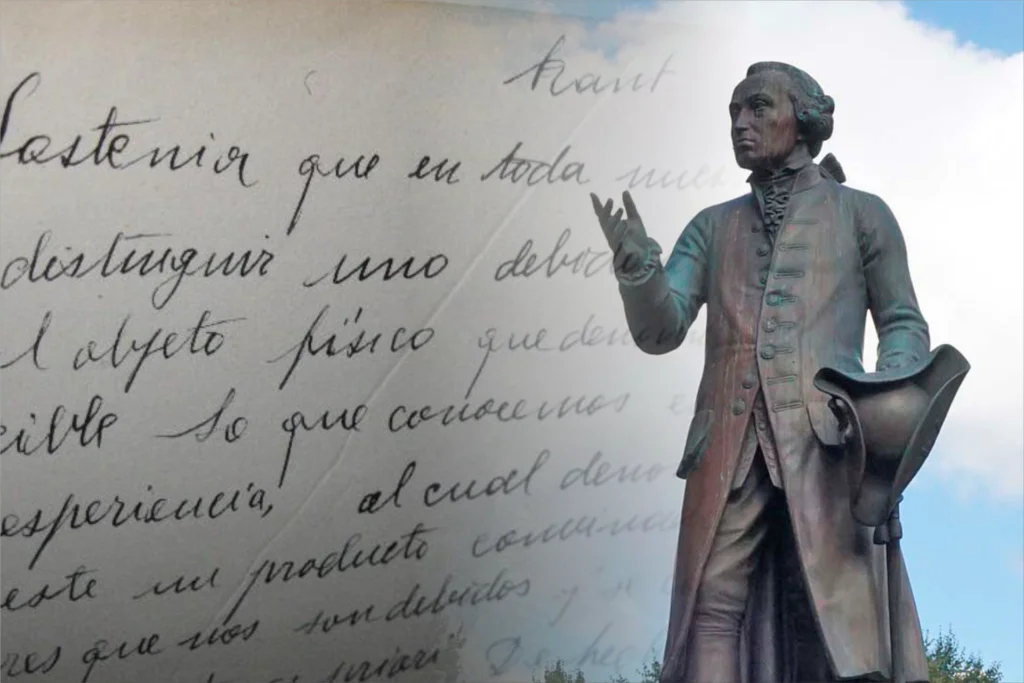 Kant
Sostenia que en toda nues
distinguir uno debid
l objeto físico que denom
cible Lo que conocemos e
experiencia, al cual deno
este un producto convinac
res que nos son debidos y se
priori" De hec